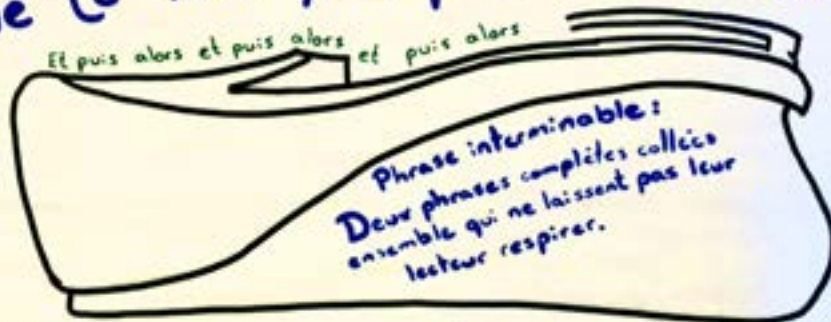 Et puis alors et puis alors et puis alors
Phrase interminable :
Deux phrases complètes collées
ensemble qui ne laissent pas leur
lecteur respirer.